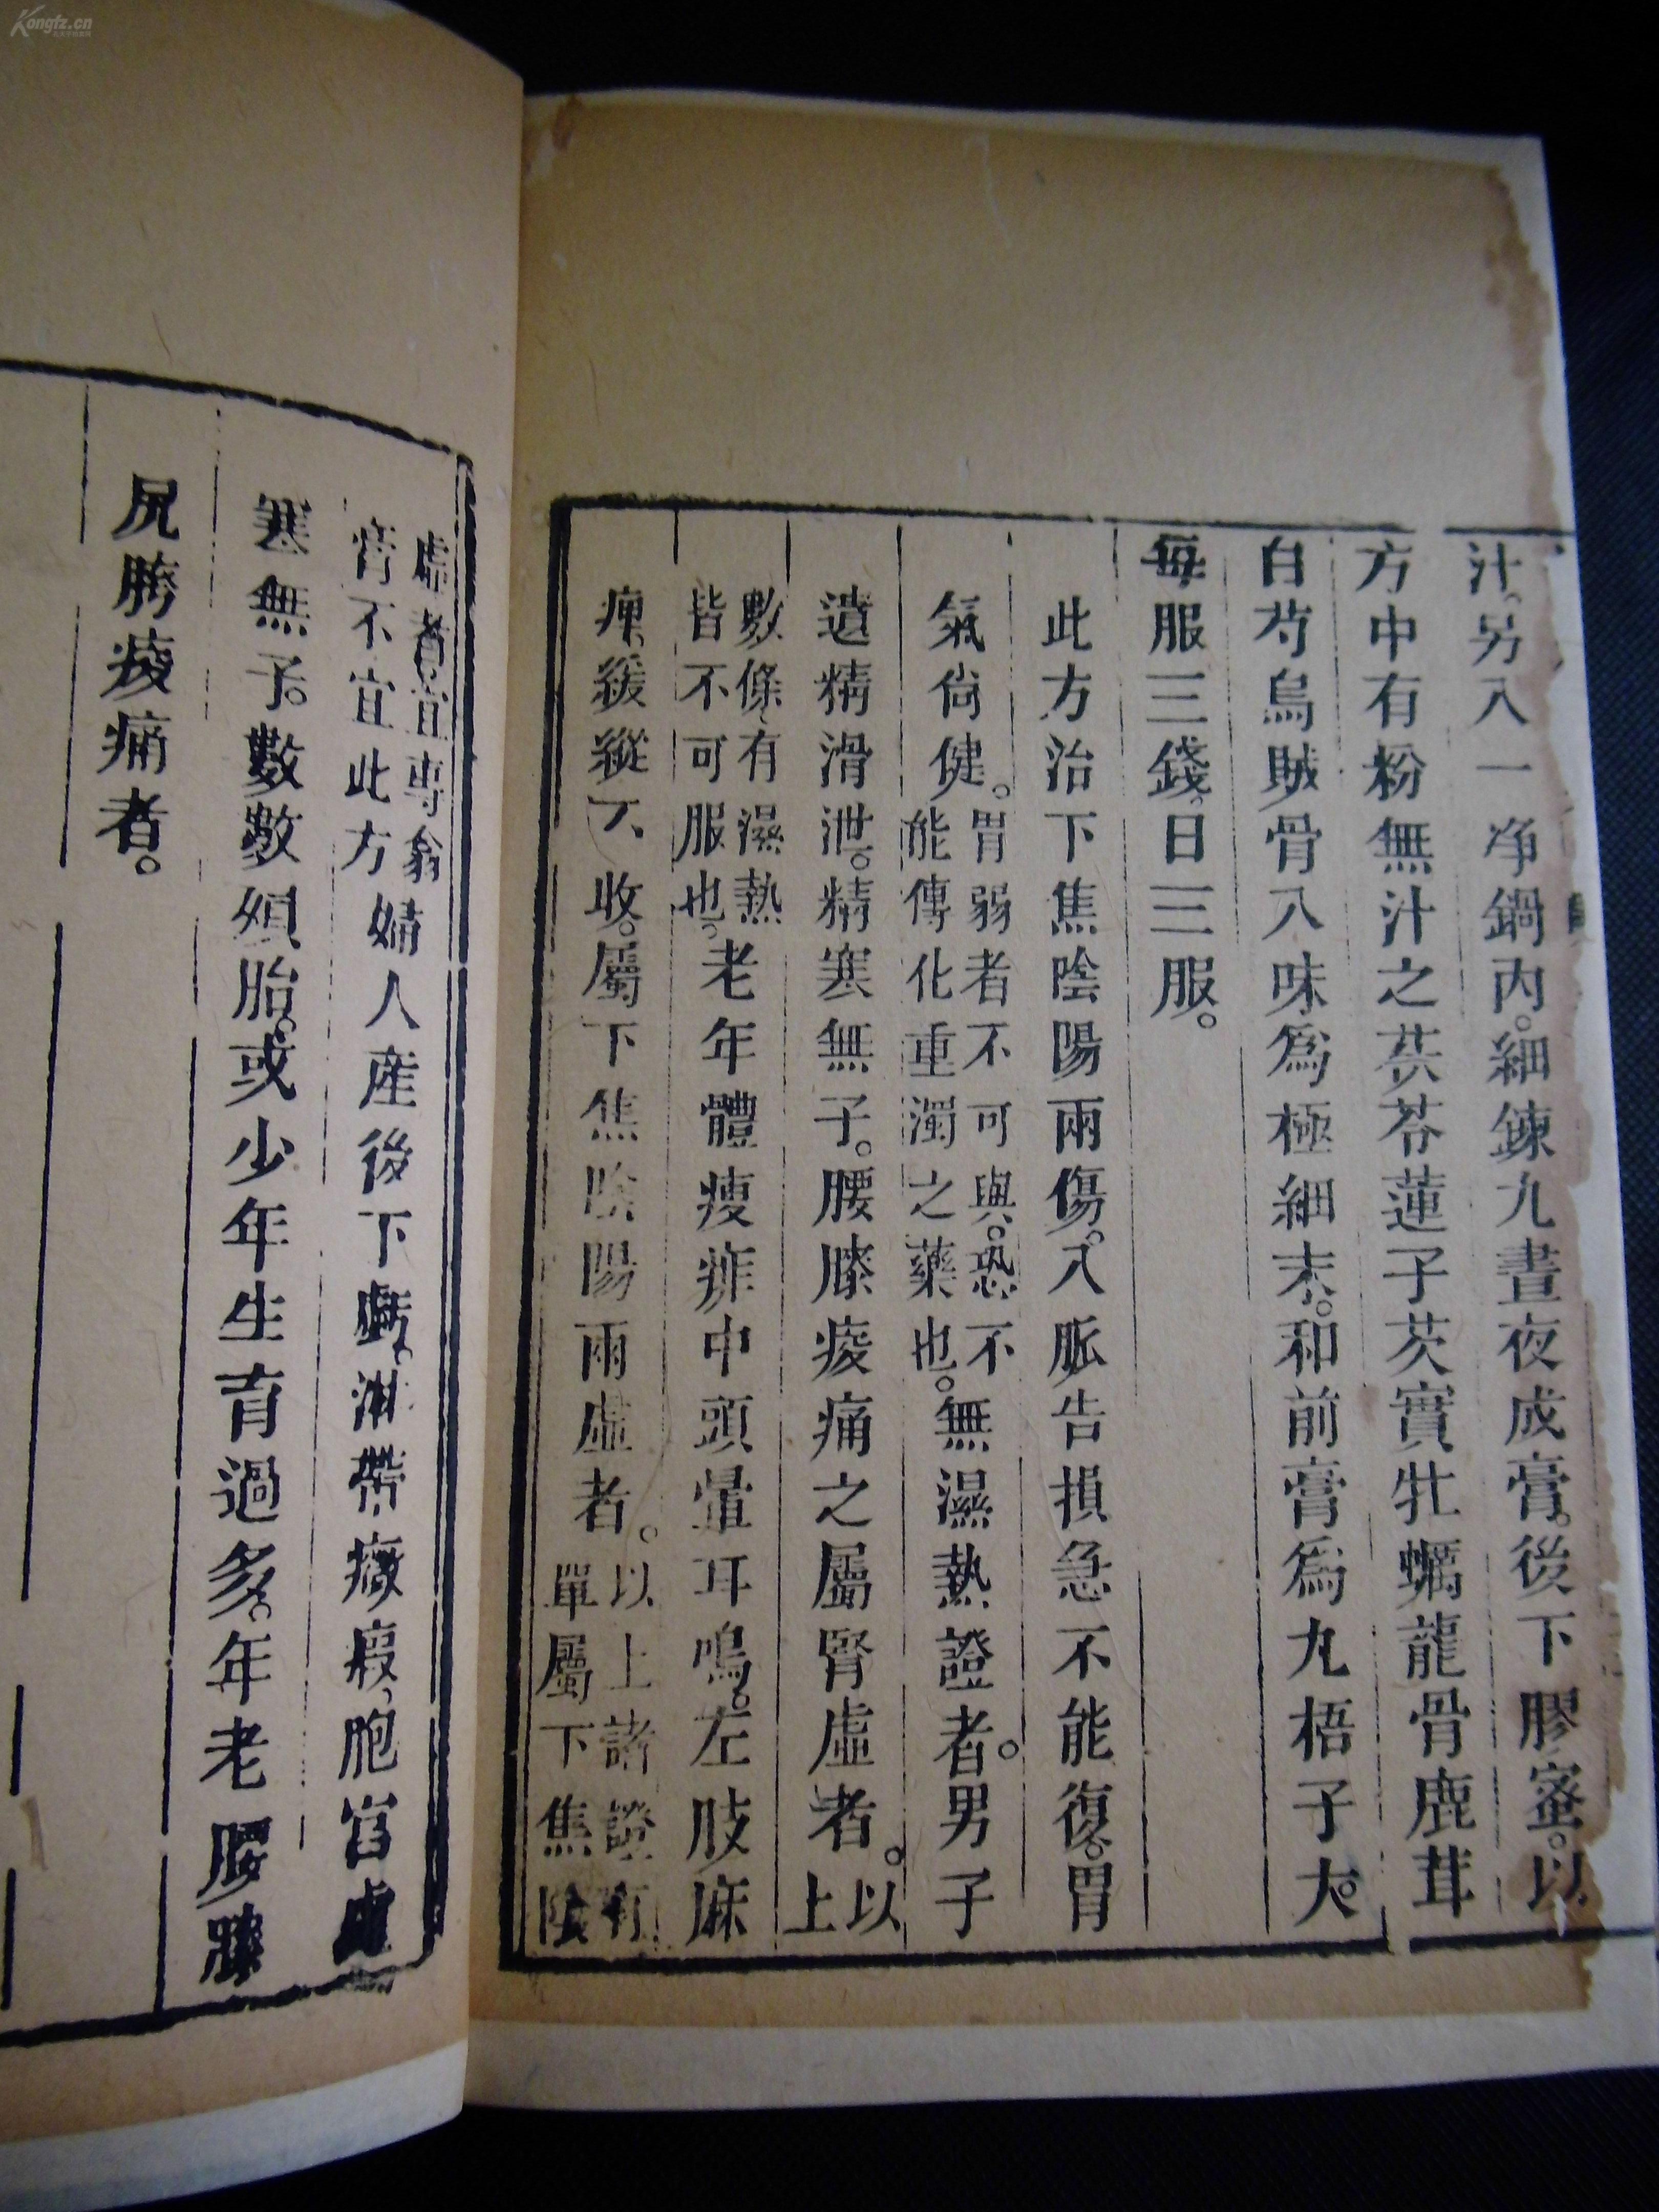 汁。另入一净鍋內。細鍊九晝夜成膏。後下膠蜜。以
方中有粉無汁之茯苓蓮子芡實牡蠣龍骨鹿茸
白芍烏賊骨八味爲極細末。和前膏爲丸梧子大。
每服三錢。日三服。
此方治下焦陰陽兩傷。八脈告損急不能復。胃
氣尚健。胃弱者不可與。恐不能傳化重濁之藥也。無濕熱證者。男子
遺精滑泄。精寒無子。腰膝痠痛之屬腎虛者。以上
數條有濕熱皆不可服也。老年體瘦痱中頭暈耳鳴。左肢麻
痺。緩縱不收。屬下焦陰陽兩虛者。以上諸證有單屬下焦陰
虛者宜專翕膏不宜此方婦人產後下虧。淋帶癥瘕。胞宮虛
寒無子。數數殞胎。或少年生育過多。年老腰膝
尻胯痠痛者。
Kongfz.cn